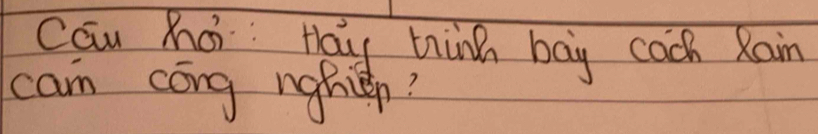 Câu hỏi: Hãy trình bày cách làm
cám công nghiệp?